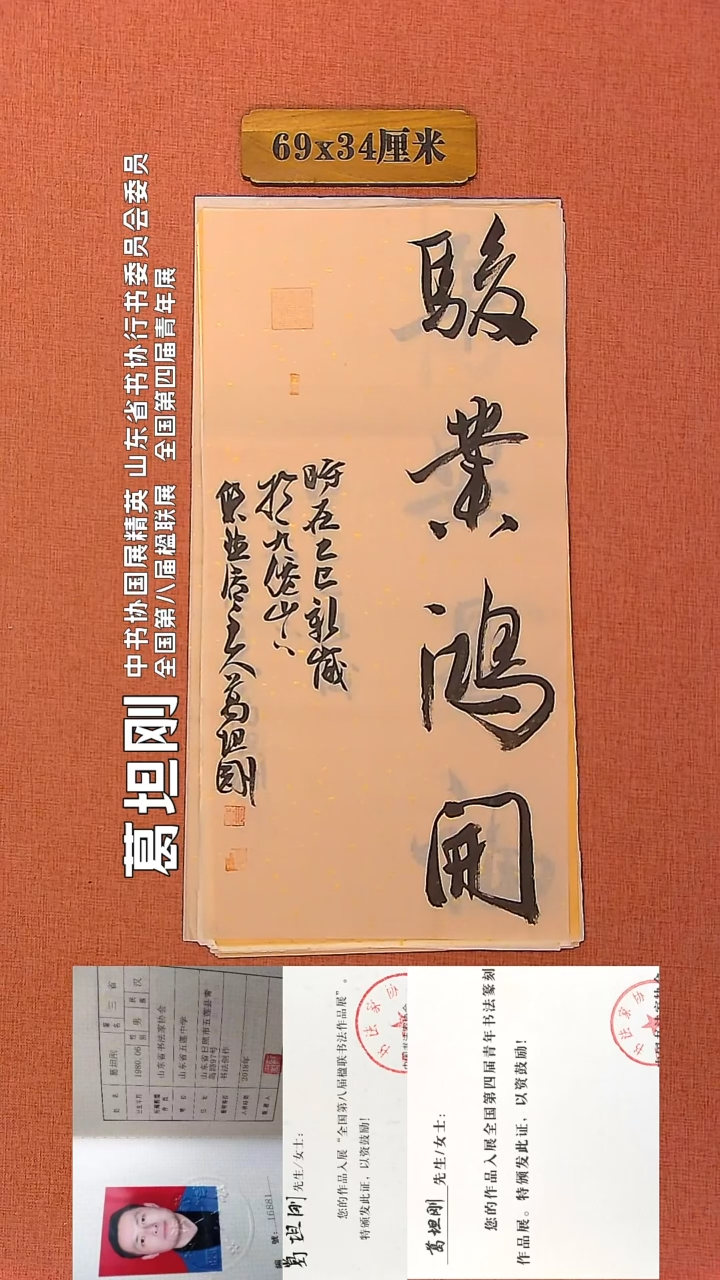 69x34厘米
葛坦刚
中书协国展精英 山东省书协行书委员会委员
全国第八届楹联展 全国第四届青年展
駿業鴻開
時在乙巳新歲
於九僊山下
集益居主人葛坦剛
葛坦刚
三省
1980.06
男
汉
山东省书法家协会
山东省五莲中学
书法创作
2018年
號:16881
葛坦刚 先生/女士:
您的作品入展“全国第八届楹联书法作品展”。
特颁发此证,以资鼓励!
葛坦刚 先生/女士:
您的作品入展全国第四届青年书法篆刻
作品展。特颁发此证,以资鼓励!